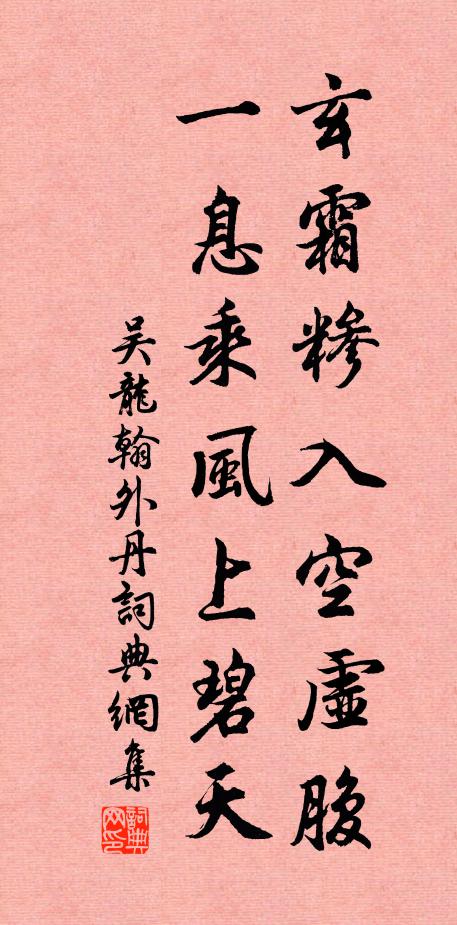 玄霜糝入空虛腹
一息乘風上碧天
吳龍翰外丹詞典網集
詞典网印